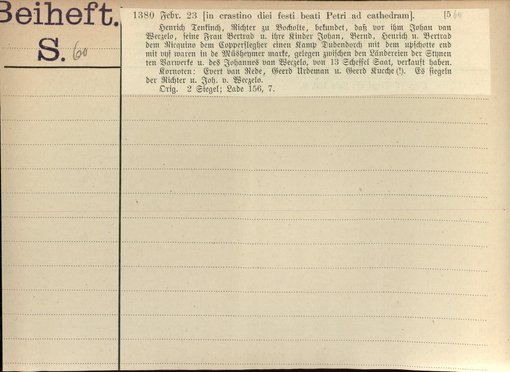 Beiheft.
S. 60
1380 Febr. 23 [in crastino diei festi beati Petri ad cathedram].
Henrich Tenkinch, Richter zu Bocholte, bekundet, daß vor ihm Johan van
Werzelo, seine Frau Bertrad u. ihre Kinder Johan, Bernd, Henrich u. Bertrad
dem Ricquino dem Coppersslegher einen Kamp Dudendorch mit dem upschotte end
mit vif waren in de Müssheymer marke, gelegen zwischen den Ländereien der
ten Barwerke u. des Johannes van Werzelo, von 13 Scheffel Saat, verkauft haben.
Kornoten: Evert van Rede, Geerd Urdeman u. Geerd Kucche (!). Es siegeln
der Richter u. Joh. v. Werzelo.
Orig. 2 Siegel; Lade 156, 7.